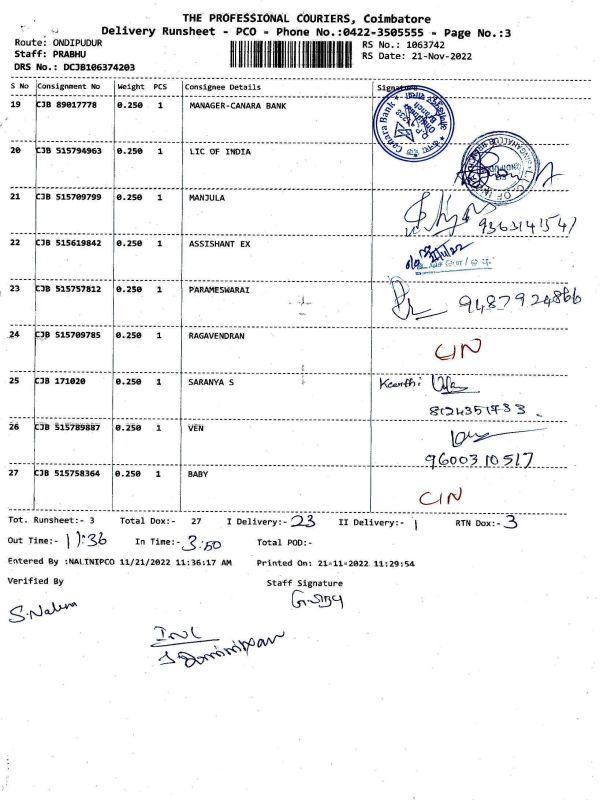 THE PROFESSIONAL COURIERS, Coimbatore
Delivery Runsheet - PCO - Phone No.:0422-3505555 - Page No.:3
Route: ONDIPUDUR
RS No.: 1063742
Staff: PRABHU
RS Date: 21-Nov-2022
DRS No.: DCJB106374203
S No Consignment No Weight PCS Consignee Details Signature
19 CJB 89017778 0.250 1 MANAGER-CANARA BANK
Canara Bank
20 CJB 515794963 0.250 1 LIC OF INDIA
21 CJB 515709799 0.250 1 MANJULA
9363141547
22 CJB 515619842 0.250 1 ASSISHANT EX
23 CJB 515757812 0.250 1 PARAMESWARAI
9487924866
24 CJB 515709785 0.250 1 RAGAVENDRAN
CIN
25 CJB 171020 0.250 1 SARANYA S Keerthi
8124351783
26 CJB 515789887 0.250 1 VEN
9600310517
27 CJB 515758364 0.250 1 BABY
CIN
Tot. Runsheet:- 3 Total Dox:- 27 I Delivery:- 23 II Delivery:- 1 RTN Dox:- 3
Out Time:- 11:36 In Time:- 3:50 Total POD:-
Entered By :NALINIPCO 11/21/2022 11:36:17 AM Printed On: 21-11-2022 11:29:54
Verified By Staff Signature